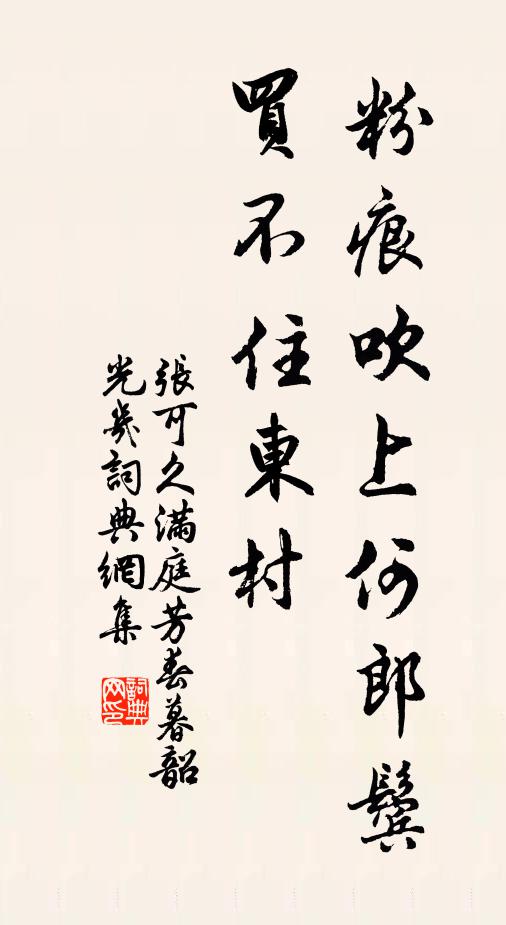 粉痕吹上何郎鬢
買不住東村
張可久滿庭芳春暮韶
光幾詞典網集
詞典
网印